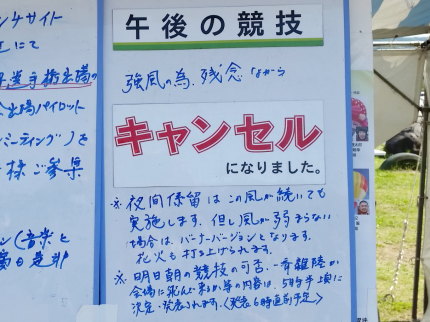 午後の競技
強風の為、残念ながら
キャンセル
になりました。
※夜間係留はこの風が続いても
実施します。但し風が弱まらない
場合は、バーナーバージョンとなります。
花火も打ち上げられます。
※明日朝の競技の可否、一斉離陸か
会場に飛んで来るか等の内容は、5時半頃に
決定・発表されます。
ンサイト
にて
選手権出場の
出場パイロット
ミーティング)を
様ご参集
ン(音楽と